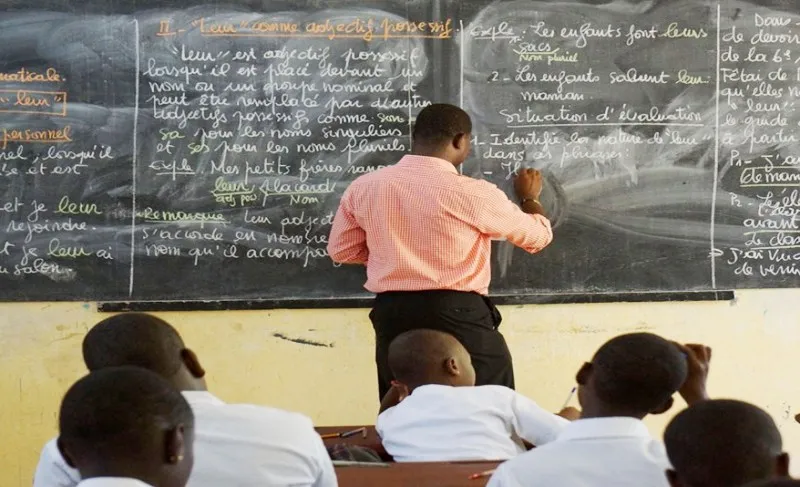 matosale.
" leur "
personnel
nel, lorsqu'il
e et est
et je leur
rejoindre.
t je leur ai
salon.
II - "Leur" comme adjectif possessif
"Leur" est adjectif possessif
lorsqu'il est placé devant un
nom ou un groupe nominal et
peut être remplacé par d'autres
adjectifs possessifs comme son
sa pour les noms singuliers
et ses pour les noms pluriels.
Exple : Mes petits frères
leur placard
adj pos Nom
Remarque : Leur adject
s'accorde en nombre
nom qu'il accomp
Exple : 1 - Les enfants font leurs
sacs
Nom pluriel
2 - Les enfants saluent leur
maman.
Situation d'évaluation
1 - Identifie la nature de "leur"
dans les phrases.
Dans
de devoir
de la 6e
l'état de
qu'elles
"leur"
le guide
à partir
P1 - J'a
deman
P2 -
avant
Le cla
J'ai vu
de venir